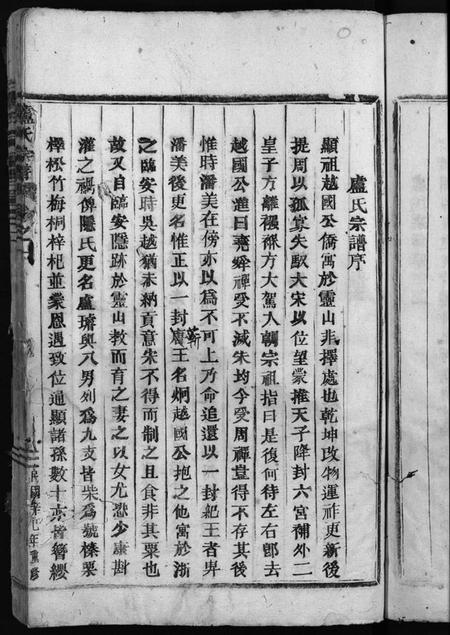 盧氏宗譜序
顯祖越國公僑寓於靈山非擇處也乾坤改物運祚更新後
提周以孤寡失馭大宋以位望蒙推天子降封六宮補外二
皇子方離襁褓方大駕入朝宗祖指曰是復何待左右郎去
越國公進曰堯舜禪受不滅朱均今受周禪豈得不存其後
惟時潘美在傍亦以為不可上乃命追還以一封紀王者卑
潘美後更名惟正以一封蘄王名炯越國公抱之他寓於浙
之臨安時吳越猶未納貢意宋不得而制之且食非其粟也
故又自臨安隱跡於靈山教而育之妻之以女尤恐少康斟
灌之禍俾隱氏更名盧璿與八男列為九支皆柴為號榛栗
檡松竹梅桐梓杞並蒙恩遇致位通顯諸孫數十亦皆簪纓
盧氏宗譜
民國 年重修